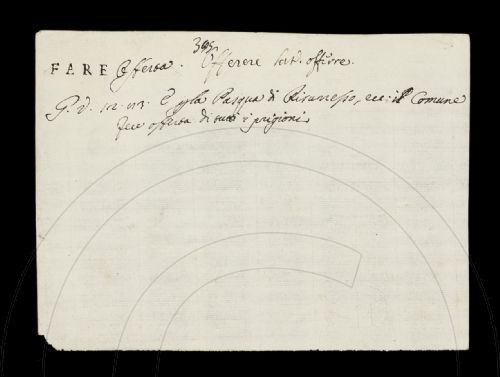 395
FARE Offerta. Offerere lat. offrire.
G. V. 12. 113. E p la Pasqua di Risurresso, ecc: il Comune
fece offerta di tutti i prigioni